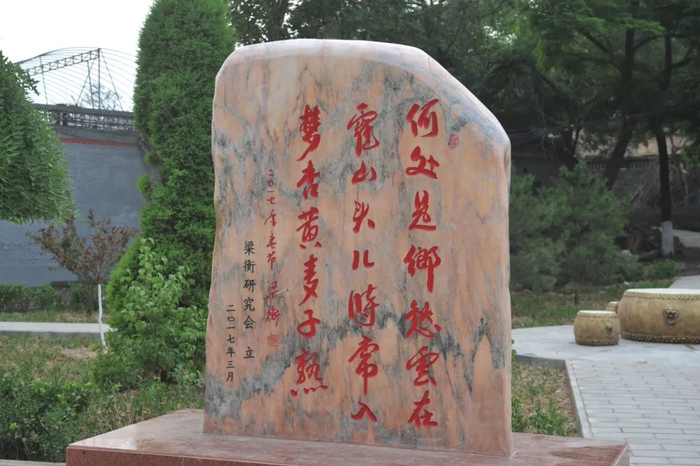 何处是乡愁云在
霍山头儿时常入
梦杏黄麦子熟
二〇一七年春节 梁衡
梁衡研究会 立
二〇一七年三月